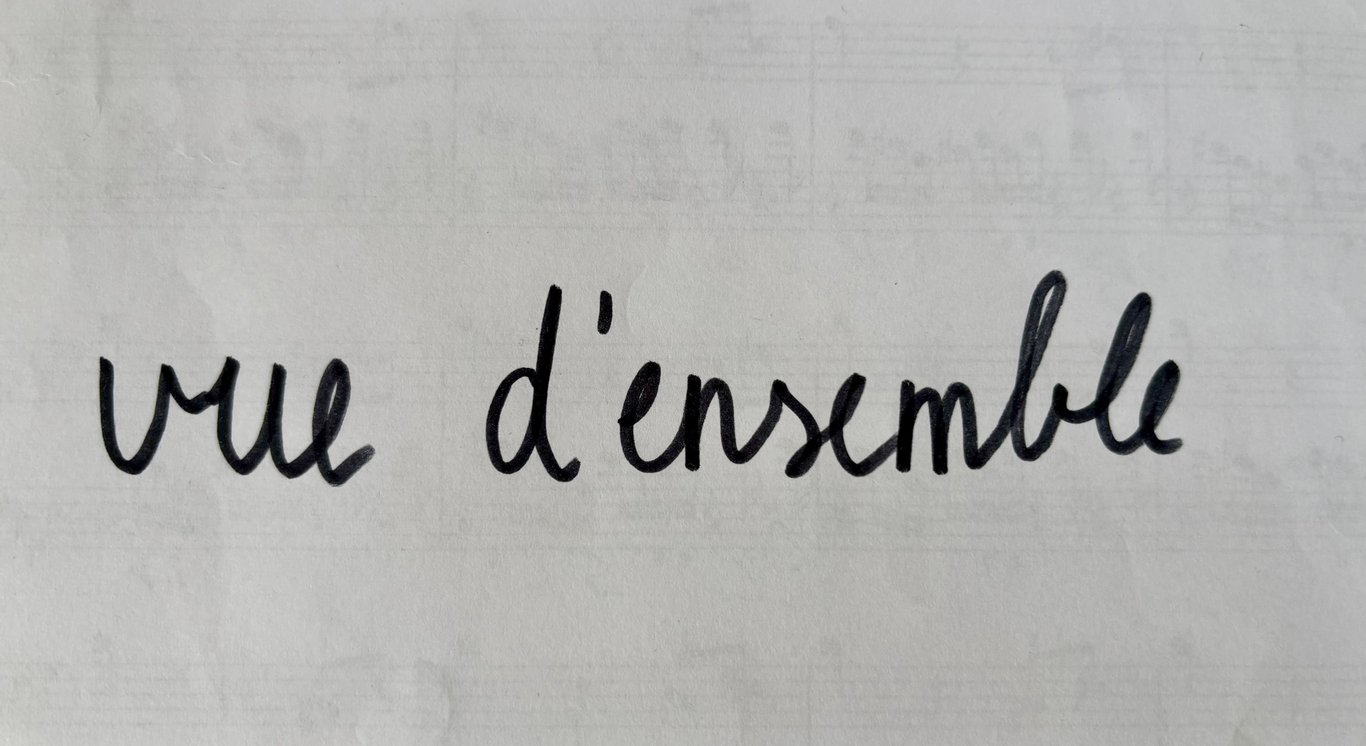 vue d'ensemble